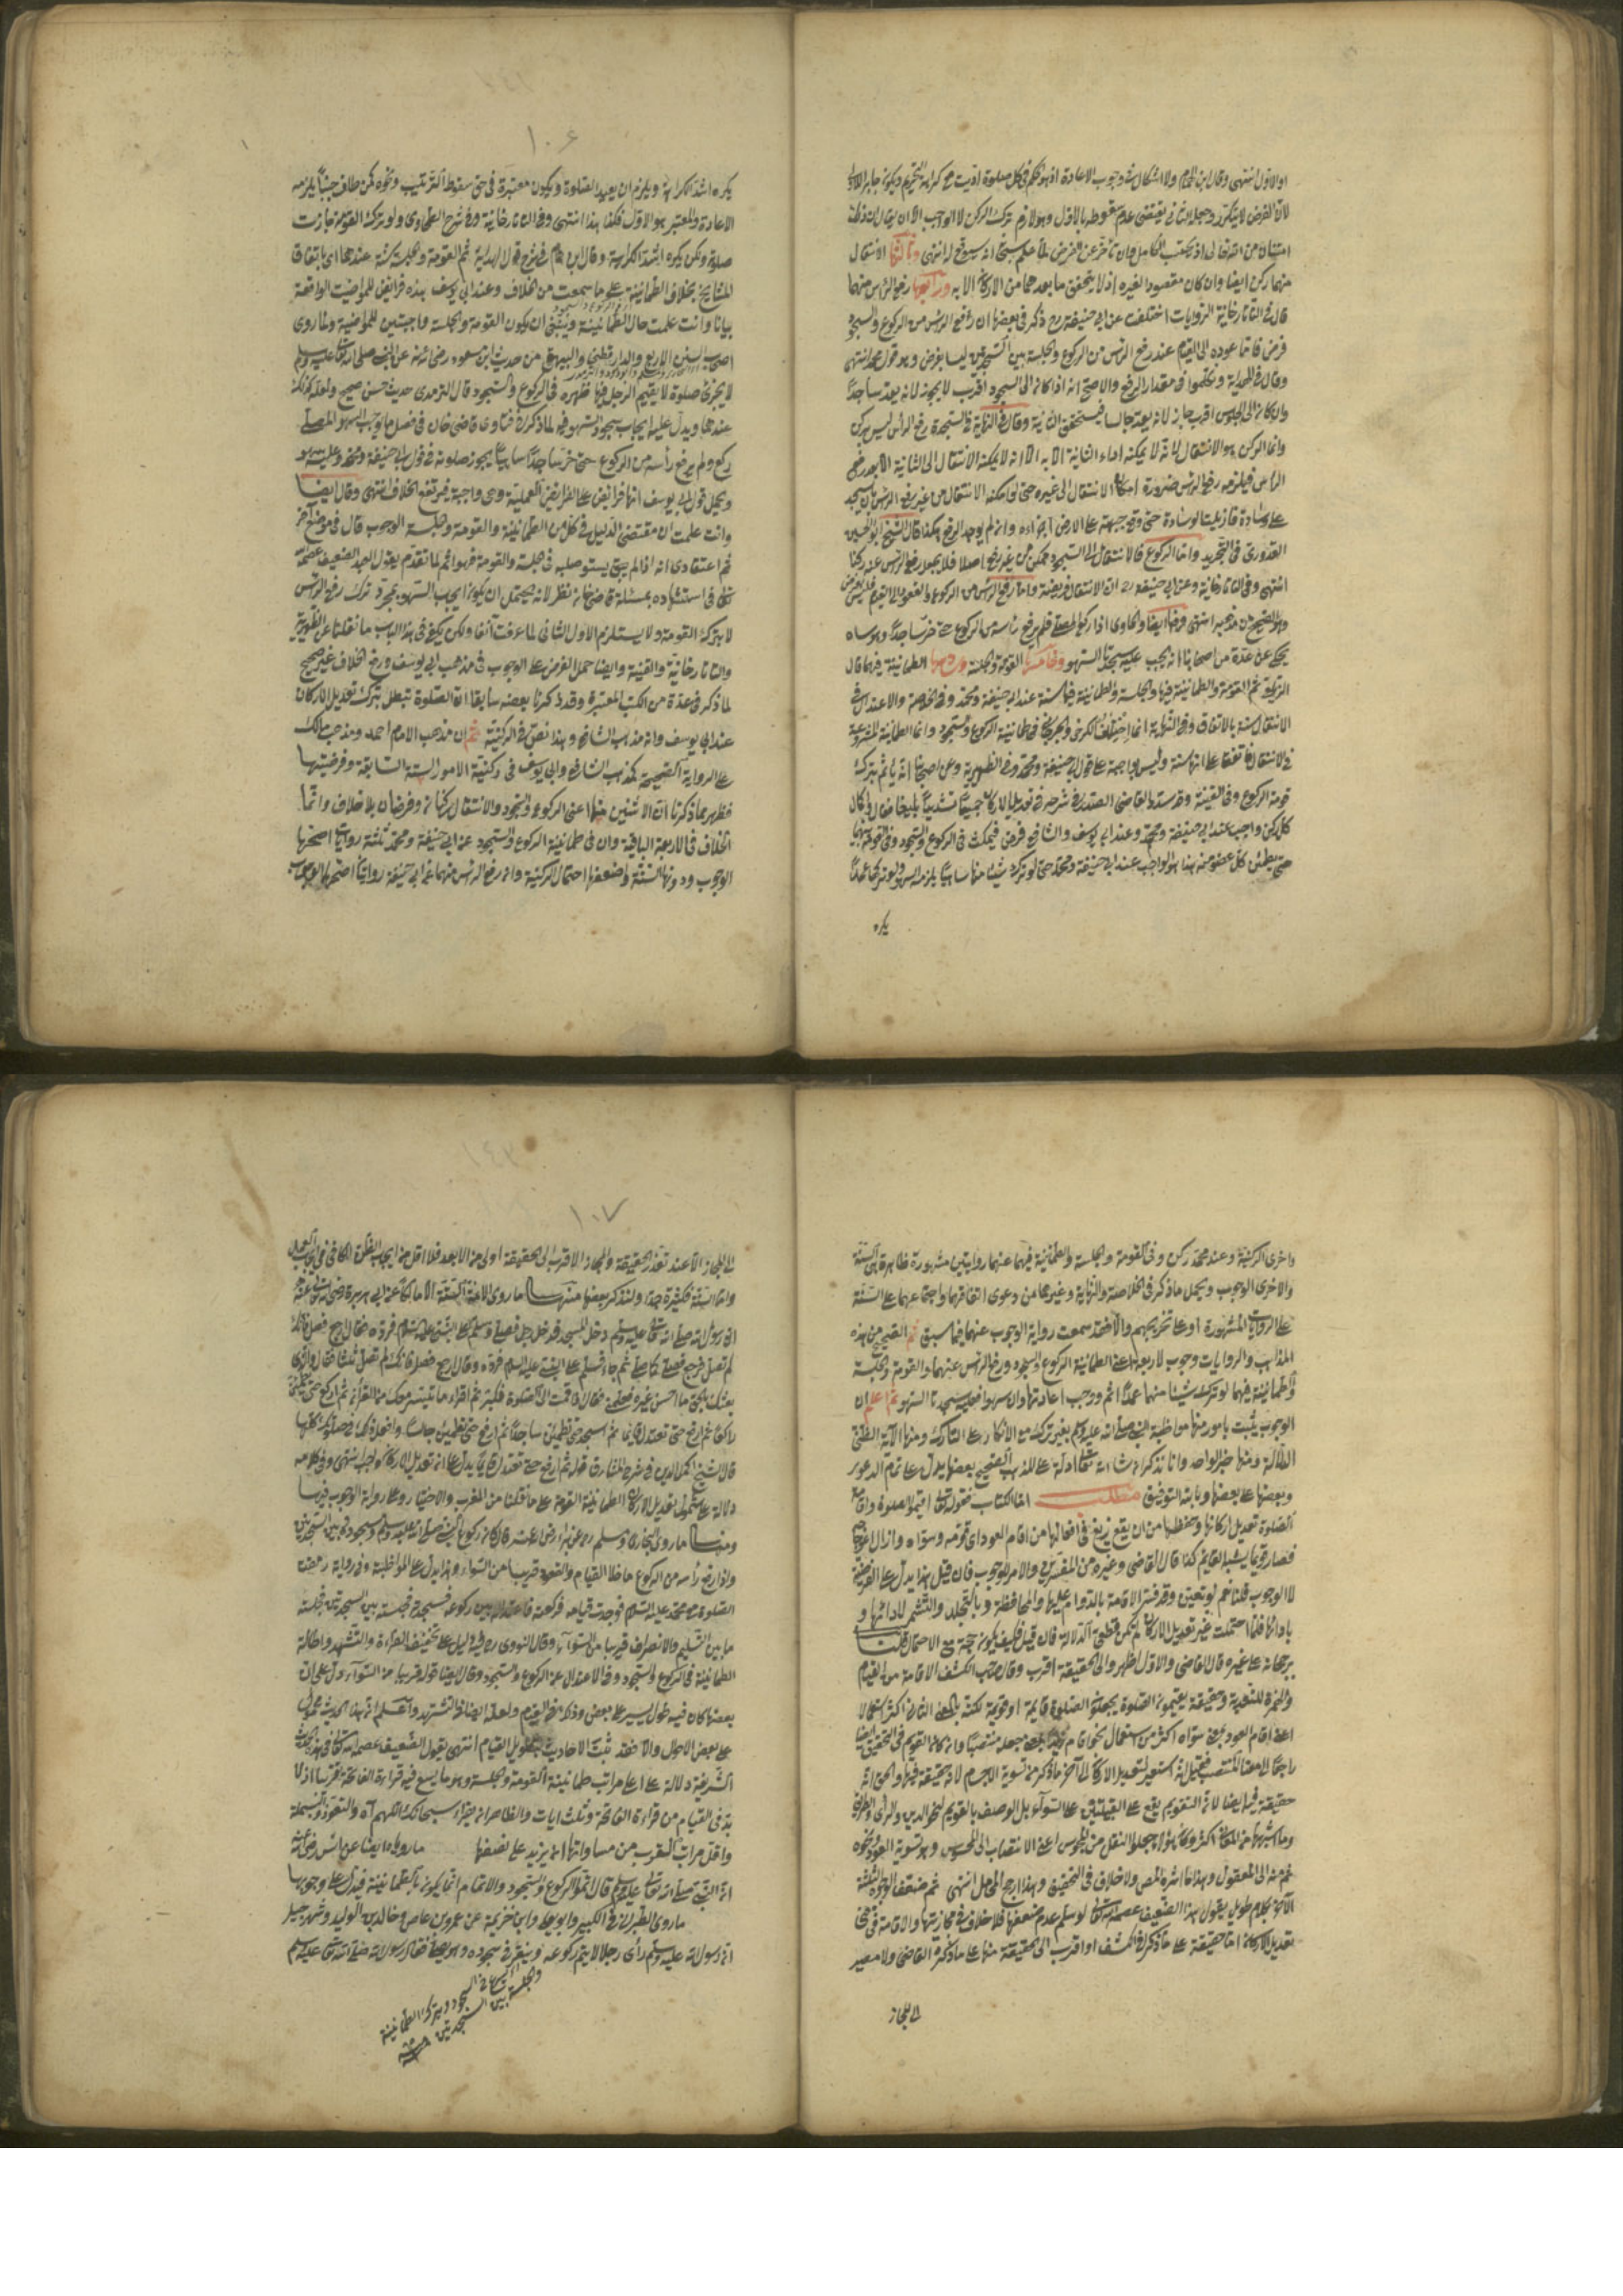 او الاول انتهى وقال ابن الهمام ولا اشكال في وجوب الاعادة اذ هو الحكم في كل صلوة اديت مع كراهة التحريم ويكون جابرا للاول
لان الفرض لا يتكرر وجعله الثاني يقتضي عدم سقوطه بالاول وهو لازم ترك الركن لا الواجب الا ان يقال ان ذلك
امتنان من الله تعالى اذ يحتسب الكامل وان تأخر عن الفرض لما علم سبحانه انه سيوقعه انتهى وثالثها الانتقال
منهما ركن ايضا وان كان مقصودا لغيره اذ لا يتحقق ما بعدهما من الاركان الا به ورابعها رفع الرأس منهما
قال في التاتارخانية الروايات اختلفت عن ابي حنيفة رح ذكر في بعضها ان رفع الرأس من الركوع والسجود
فرض فاما عوده الى القيام عند رفع الرأس من الركوع والجلسة بين السجدتين ليسا بفرض وهو قول محمد انتهى
وقال في الهداية وتكلموا في مقدار الرفع والاصح انه اذا كان الى السجود اقرب لا يجوز لانه يعد ساجدا
وان كان الى الجلوس اقرب جاز لانه يعد جالسا فيتحقق الثانية وقال في النهاية في السجدة رفع الرأس ليس بركن
وانما الركن هو الانتقال لانه لا يمكنه اداء الثانية الا به الا انه لا يمكنه الانتقال الى الثانية الا بعد رفع
الرأس فيلزمه رفع الرأس ضرورة امكان الانتقال الى غيره حتى لو امكنه الانتقال من غير رفع الرأس بان سجد
على وسادة فازيلت الوسادة حتى وقع جبهته على الارض اجزاه وان لم يوجد الرفع هكذا قال الشيخ ابو الحسين
القدوري في التجريد واما الركوع فالانتقال الى السجود ممكن من غير رفع اصلا فلا يجعل رفع الرأس عنه ركنا
انتهى وفي التاتارخانية وعن ابي حنيفة رح ان الانتقال فريضة واما رفع الرأس من الركوع والعود الى القيام فليس بفرض
وهو الصحيح من مذهبه انتهى وفيها ايضا والحاوي اذا ركع المصلي فلم يرفع رأسه من الركوع حتى خر ساجدا وهو ساه
يحكى عن عدة من اصحابنا انه يجب عليه سجدتا السهو وخامسها القومة والجلسة وسادسها الطمانينة فيهما قال
الزيلعي ثم القومة والطمانينة فيها والجلسة والطمانينة فيها سنة عند ابي حنيفة ومحمد وفي الخلاصة والاعتدال في
الانتقال سنة بالاتفاق وفي النهاية انما اختلف الكرخي والجرجاني في طمانينة الركوع والسجود واما الطمانينة المشروعة
في الانتقال فاتفقا على انها سنة وليس بواجبة على قول ابي حنيفة ومحمد وفي الظهيرية وعن اصحابنا انه يأثم بترك
قومة الركوع وفي القنية وقد شدد القاضي الصدر في شرحه في تعديل الاركان جميعا تشديدا بليغا فقال واكمال
كل ركن واجب عند ابي حنيفة ومحمد وعند ابي يوسف والشافعي فرض فيمكث في الركوع والسجود وفي القومة بينهما
حتى يطمئن كل عضو منه هذا هو الواجب عند ابي حنيفة ومحمد حتى لو ترك شيئا منها ساهيا يلزمه السهو ولو تركها عمدا
يكره
١٠٦
يكره اشد الكراهة ويلزم ان يعيد الصلوة ويكون معتبرة في حق سقوط الترتيب ونحوه كمن طاف جنبا يلزمه
الاعادة والمعتبر هو الاول فكذا هذا انتهى وفي التاتارخانية وفي شرح الطحاوي ولو ترك القومة جازت
صلوته ولكن يكره اشد الكراهة وقال ابن همام في شرح قول الهداية ثم القومة والجلسة سنة عندهما اي باتفاق
المشايخ بخلاف الطمانينة على ما سمعت من الخلاف وعند ابي يوسف هذه فرائض للمواظبة الواقعة
بيانا وانت علمت حال الطمانينة وينبغي ان يكون القومة والجلسة واجبتين للمواظبة ولما روى
اصحاب السنن الاربع والدارقطني والبيهقي من حديث ابن مسعود رضي الله عنه عن النبي صلى الله تعالى عليه وسلم
لا يجزئ صلوة لا يقيم الرجل فيها ظهره في الركوع والسجود قال الترمذي حديث حسن صحيح ولعله كذلك
عندهما ويدل عليه ايجاب سجود السهو فيه لما ذكر في فتاوى قاضي خان في فصل ما يوجب السهو المصلي
ركع ولم يرفع رأسه من الركوع حتى خر ساجدا ساهيا يجوز صلوته في قول ابي حنيفة ومحمد وعليه السهو
ويحمل قول ابي يوسف انها فرائض على الفرائض العملية وهي واجبة فيرتفع الخلاف انتهى وقال ايضا
وانت علمت ان مقتضى الدليل في كل من الطمانينة والقومة والجلسة الوجوب قال في موضع آخر
ثم اعتقادي انه اذا لم يستو صلبه في الجلسة والقومة فهو آثم لما تقدم يقول العبد الضعيف عصمه الله
تعالى في استشهاده بمسئلة قاضي خان نظر لانه يحتمل ان يكون ايجاب السهو بمجرد ترك رفع الرأس
لا بترك القومة ولا يستلزم الاول الثاني لما عرفت آنفا ولكن يكفي في هذا الباب ما نقلنا عن الظهيرية
والتاتارخانية والقنية وايضا حمل الفرض على الوجوب في مذهب ابي يوسف ورفع الخلاف غير صحيح
لما ذكر في عدة من الكتب المعتبرة وقد ذكرنا بعضه سابقا ان الصلوة تبطل بترك تعديل الاركان
عند ابي يوسف وانه مذهب الشافعي وهذا نص في الركنية ثم ان مذهب الامام احمد ومذهب مالك
على الرواية الصحيحة كمذهب الشافعي وابي يوسف في ركنية الامور الستة السابقة وفرضيتها
فظهر مما ذكرنا ان الاثنين منها اعني الركوع والسجود والانتقال ركنان وفرضان بلا خلاف وانما
الخلاف في الاربعة الباقية وان في طمانينة الركوع والسجود عن ابي حنيفة ومحمد ثلثة روايات اصحها
الوجوب ودونها السنة واضعفها احتمال الركنية وان رفع الرأس منهما عن ابي حنيفة روايتان اصحهما الوجوب
واخرى الركنية وعند محمد ركن وفي القومة والجلسة والطمانينة فيهما عنهما روايتين مشهورة ظاهرة هي السنة
والاخرى الوجوب ويحمل ما ذكر في الخلاصة والنهاية وغيرهما من دعوى اتفاقهما واجتماعهما على السنة
على الروايات المشهورة او على تخريجهم والا فقد سمعت رواية الوجوب عنهما فيما سبق ثم الصحيح من هذه
المذاهب والروايات وجوب الاربعة اعني الطمانينة الركوع والسجود ورفع الرأس عنهما والقومة والجلسة
والطمانينة فيهما لو ترك شيئا منهما عمدا اثم ووجب اعادتها وان سهوا فعليه سجدتا السهو ثم اعلم ان
الوجوب يثبت بامور منها مواظبة النبي صلى الله عليه وسلم بغير ترك مع الانكار على التارك ومنها الآية الظني
الدلالة ومنها خبر الواحد وانا نذكر ان شاء الله تعالى ادلة على المذهب الصحيح بعضها يدل على تمام الدعوى
وبعضها على بعضها وبالله التوفيق مطلب اما الكتاب فقوله تعالى اقيموا الصلوة واقامة
الصلوة تعديل اركانها وحفظها من ان يقع زيغ في افعالها من اقام العود اي قومه وسواه وازال اعوجاجه
فصار قويما يشبه القائم كذا قال القاضي وغيره من المفسرين والامر للوجوب فان قيل هذا يدل على الفرضية
لا الوجوب قلنا نعم لو تعين وقد فسرت الاقامة بالدوام عليها والمحافظة وبالتجلد والتشمر لادائها و
بادائها فلما احتملت غير تعديل الاركان لم يكن قطعي الدلالة فان قيل فكيف يكون حجة مع الاحتمال قلنا
برجحانه على غيره قال القاضي والاول اظهر والى الحقيقة اقرب وقال صاحب الكشف الاقامة من القيام
والهمزة للتعدية وحقيقة يقيمون الصلوة يجعلون الصلوة قائمة او قويمة لكنه بالمعنى الثاني اكثر استعمالا
اعني اقام العود بمعنى سواه اكثر من استعمال جعله منتصبا وان كان القويم في التحقيق ايضا
راجعا الى معنى المنتصب فقيل انه استعير لتعديل الاركان الى آخر ما ذكر من تسوية الاجسام لانه حقيقة فيها والحق انه
حقيقة فيها ايضا لان التقويم يقع على القبيلتين على السواء بل الوصف بالقويم لنحو الدين والرأي والطريق
وما اشبهها من المعاني اكثر وكان هؤلاء جعلوا النقل من المحسوس اعني الانتصاب الى المحسوس وهو تسوية العود ونحوه
ثم منه الى المعقول وهذا ما اشتره المص ولا خلاف في التحقيق وهذا ارجح المحامل انتهى ثم ضعف الوجوه الثلثة
الآخر بكلام طويل يقول هذا الضعيف عصمه الله تعالى لو سلم عدم ضعفها فلا خلاف في مجازيتها والاقامة في معنى
تعديل الاركان اما حقيقة على ما ذكر في الكشف او اقرب الى الحقيقة منها على ما ذكره القاضي ولا مصير
الى المجاز
١٠٧
الى المجاز الا عند تعذر الحقيقة والمجاز الاقرب الى الحقيقة اولى من الابعد فلا اقل من ايجاب الظن الكافي في ايجاب العمل
واما السنة فكثيرة جدا ولنذكر بعضها منها ما روى الائمة الستة الا مالكا عن ابي هريرة رضي الله تعالى عنه
ان رسول الله صلى الله تعالى عليه وسلم دخل المسجد فدخل رجل فصلى وسلم على النبي عليه السلام فرده فقال ارجع فصل فانك
لم تصل فرجع فصلى كما صلى ثم جاء فسلم على النبي عليه السلام فرده وقال ارجع فصل فانك لم تصل ثلثا فقال والذي
بعثك بالحق ما احسن غيره فعلمني فقال اذا قمت الى الصلوة فكبر ثم اقرأ ما تيسر معك من القرآن ثم اركع حتى تطمئن
راكعا ثم ارفع حتى تعتدل قائما ثم اسجد حتى تطمئن ساجدا ثم ارفع حتى تطمئن جالسا وافعل ذلك في صلوتك كلها
قال الشيخ اكمل الدين في شرح المشارق قوله ثم ارفع حتى تعتدل قائما يدل على ان تعديل الاركان واجب انتهى وفي كلامه
دلالة على شمول تعديل الاركان الطمانينة القومة على ما نقلنا من المغرب والاختيار وعلى رواية الوجوب فيها
ومنها ما روى البخاري ومسلم عن البراء رضي الله عنه قال كان ركوع النبي صلى الله عليه وسلم وسجوده وبين السجدتين
واذا رفع رأسه من الركوع ما خلا القيام والقعود قريبا من السواء وهذا يدل على المواظبة وفي رواية رمقت
الصلوة مع محمد عليه السلام فوجدت قيامه فركعته فاعتداله بين ركوعه فسجدته فجلسته بين السجدتين فجلسته
ما بين التسليم والانصراف قريبا من السواء وقال النووي رح فيه دليل على تخفيف القراءة والتشهد واطالة
الطمانينة في الركوع والسجود وفي الاعتدال عن الركوع والسجود وقال ايضا قوله قريبا من السواء يدل على ان
بعضها كان فيه طول يسير على بعض وذلك في القيام ولعله ايضا في التشهد واعلم ان هذا الحديث محمول
على بعض الاحوال والا فقد ثبت الاحاديث بتطويل القيام انتهى يقول الضعيف عصمه الله تعالى في هذا الحديث
الشريفة دلالة على اعلى مراتب طمانينة القومة والجلسة وهو ما يسع فيه قراءة الفاتحة تقريبا اذ لا
بد في القيام من قراءة الفاتحة وثلث آيات والظاهر انه يقرأ سبحانك اللهم آه والتعوذ والبسملة
واقل مراتب التقرب من مساواتها انه يزيد على نصفها ما رويا ايضا عن انس رضي الله عنه
ان النبي صلى الله تعالى عليه وسلم قال اتموا الركوع والسجود والاتمام انما يكون بالطمانينة فيدل على وجوبها
ما روى الطبراني في الكبير وابو يعلى وابن خزيمة عن عمرو بن عاص وخالد بن الوليد وشرحبيل
ان رسول الله عليه وسلم رأى رجلا لا يتم ركوعه وينقر في سجوده وهو يصلي فقال رسول الله صلى الله تعالى عليه وسلم